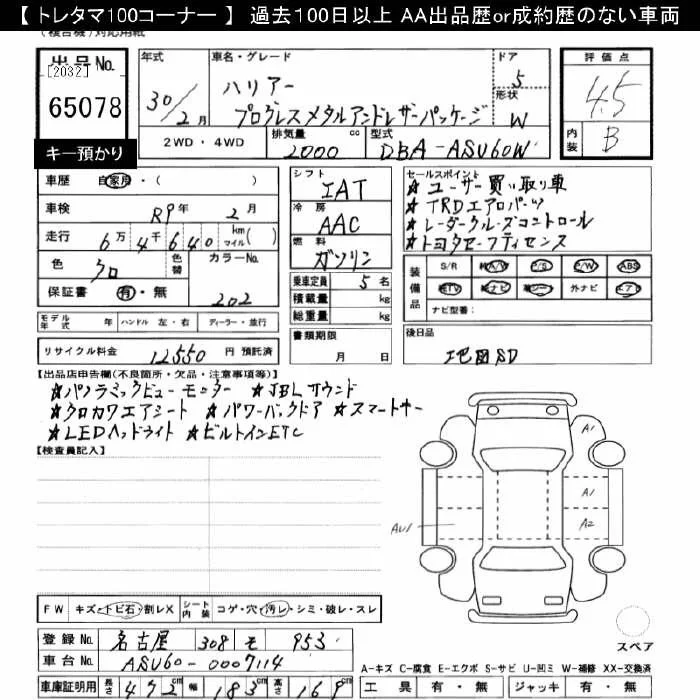 【 トレタマ100コーナー 】 過去100日以上 AA出品歴or成約歴のない車両
(複合機)対応用紙
出品No. [2032] 65078
キー預かり
年式 30/2月
車名・グレード ハリアー
プログレスメタルアンドレザーパッケージ
ドア 5
形状 W
評価点 4.5
内装 B
2WD ・ 4WD 排気量 2000 cc 型式 DBA-ASU60W
車歴 自家用・(
車検 R9年 2月
走行 6万4千640 km マイル( )
色 クロ 色替 カラーNo. 202
保証書 有・無
モデル年式 年 ハンドル 左・右 ディーラー・並行
リサイクル料金 12550 円 預託済
シフト IAT
冷房 AAC
燃料 ガソリン
乗車定員 5 名
積載量 kg
総重量 kg
書類期限
月 日
セールスポイント
★ユーザー買い取り車
★TRDエアロパーツ
★レーダークルーズコントロール
★トヨタセーフティセンス
装備品 S/R 純A/W P/S P/W ABS
純TV 純ナビ 革シート 外ナビ エアB
ナビ型番:
後日品
地図SD
【出品店申告欄(不良箇所・欠品・注意事項等)】
★パノラミックビューモニター ★JBLサウンド
★クロカワエアシート ★パワーバックドア ★スマートキー
★LEDヘッドライト ★ビルトインETC
【検査員記入】
A1
A1
A2
AU1
FW キズ・トビ石・割レX シート内装 コゲ・穴・汚レ・シミ・破レ・スレ
スペア
登録No. 名古屋 308 モ 953
車台No. ASU60-0007114
車庫証明用 長さ 472cm 幅 183cm 高さ 169cm
A-キズ C-腐食 E-エクボ S-サビ U-凹ミ W-補修 XX-交換済
工具 有・無 ジャッキ 有・無